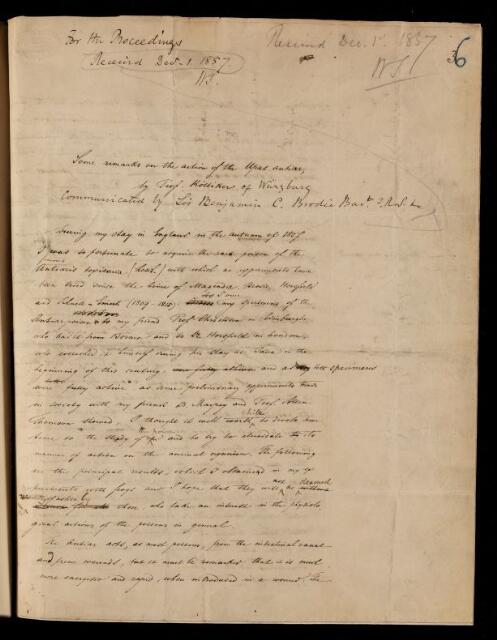 For the Proceedings
Received Dec. 1. 1857
WS.
Received Dec. 1. 1857
WS
36
Some remarks on the action of the Upas antiar,
by Prof. Kölliker of Würzburg
Communicated by Sir Benjamin C. Brodie Bart. P.R.S.
During my stay in England in the autumn of 1857
I was so fortunate to acquire the rare poison of the
Antiaris toxicaria (Lesch.) with which no experiments have
been tried since the time of Magendie, Brodie, Horsfield
and Schnell - Emmert (1809-1815). I owe my specimens of the
to my friend Prof. Christison in Edinburgh
who had it from Borneo and to Dr Horsfield in London
who collected it himself during his stay at Java in the
beginning of this century. and as both specimens
were active as some preliminary experiments made
in society with my friend Dr Sharpey and Prof. Allen
Thomson showed, I thought it well worth while to devote some
time to the study of it and to try to elucidate its
manner of action on the animal organism. The following
are the principal results, which I obtained in my ex
periments with frogs and I hope that they will not be deemed
by those, who take an interest in the physiolo
gical actions of the poisons in general.
The Antiar acts, as most poisons, from the intestinal canal
and from wounds, but it must be remarked that it is much
more energetic and rapid, when introduced in a wound. The